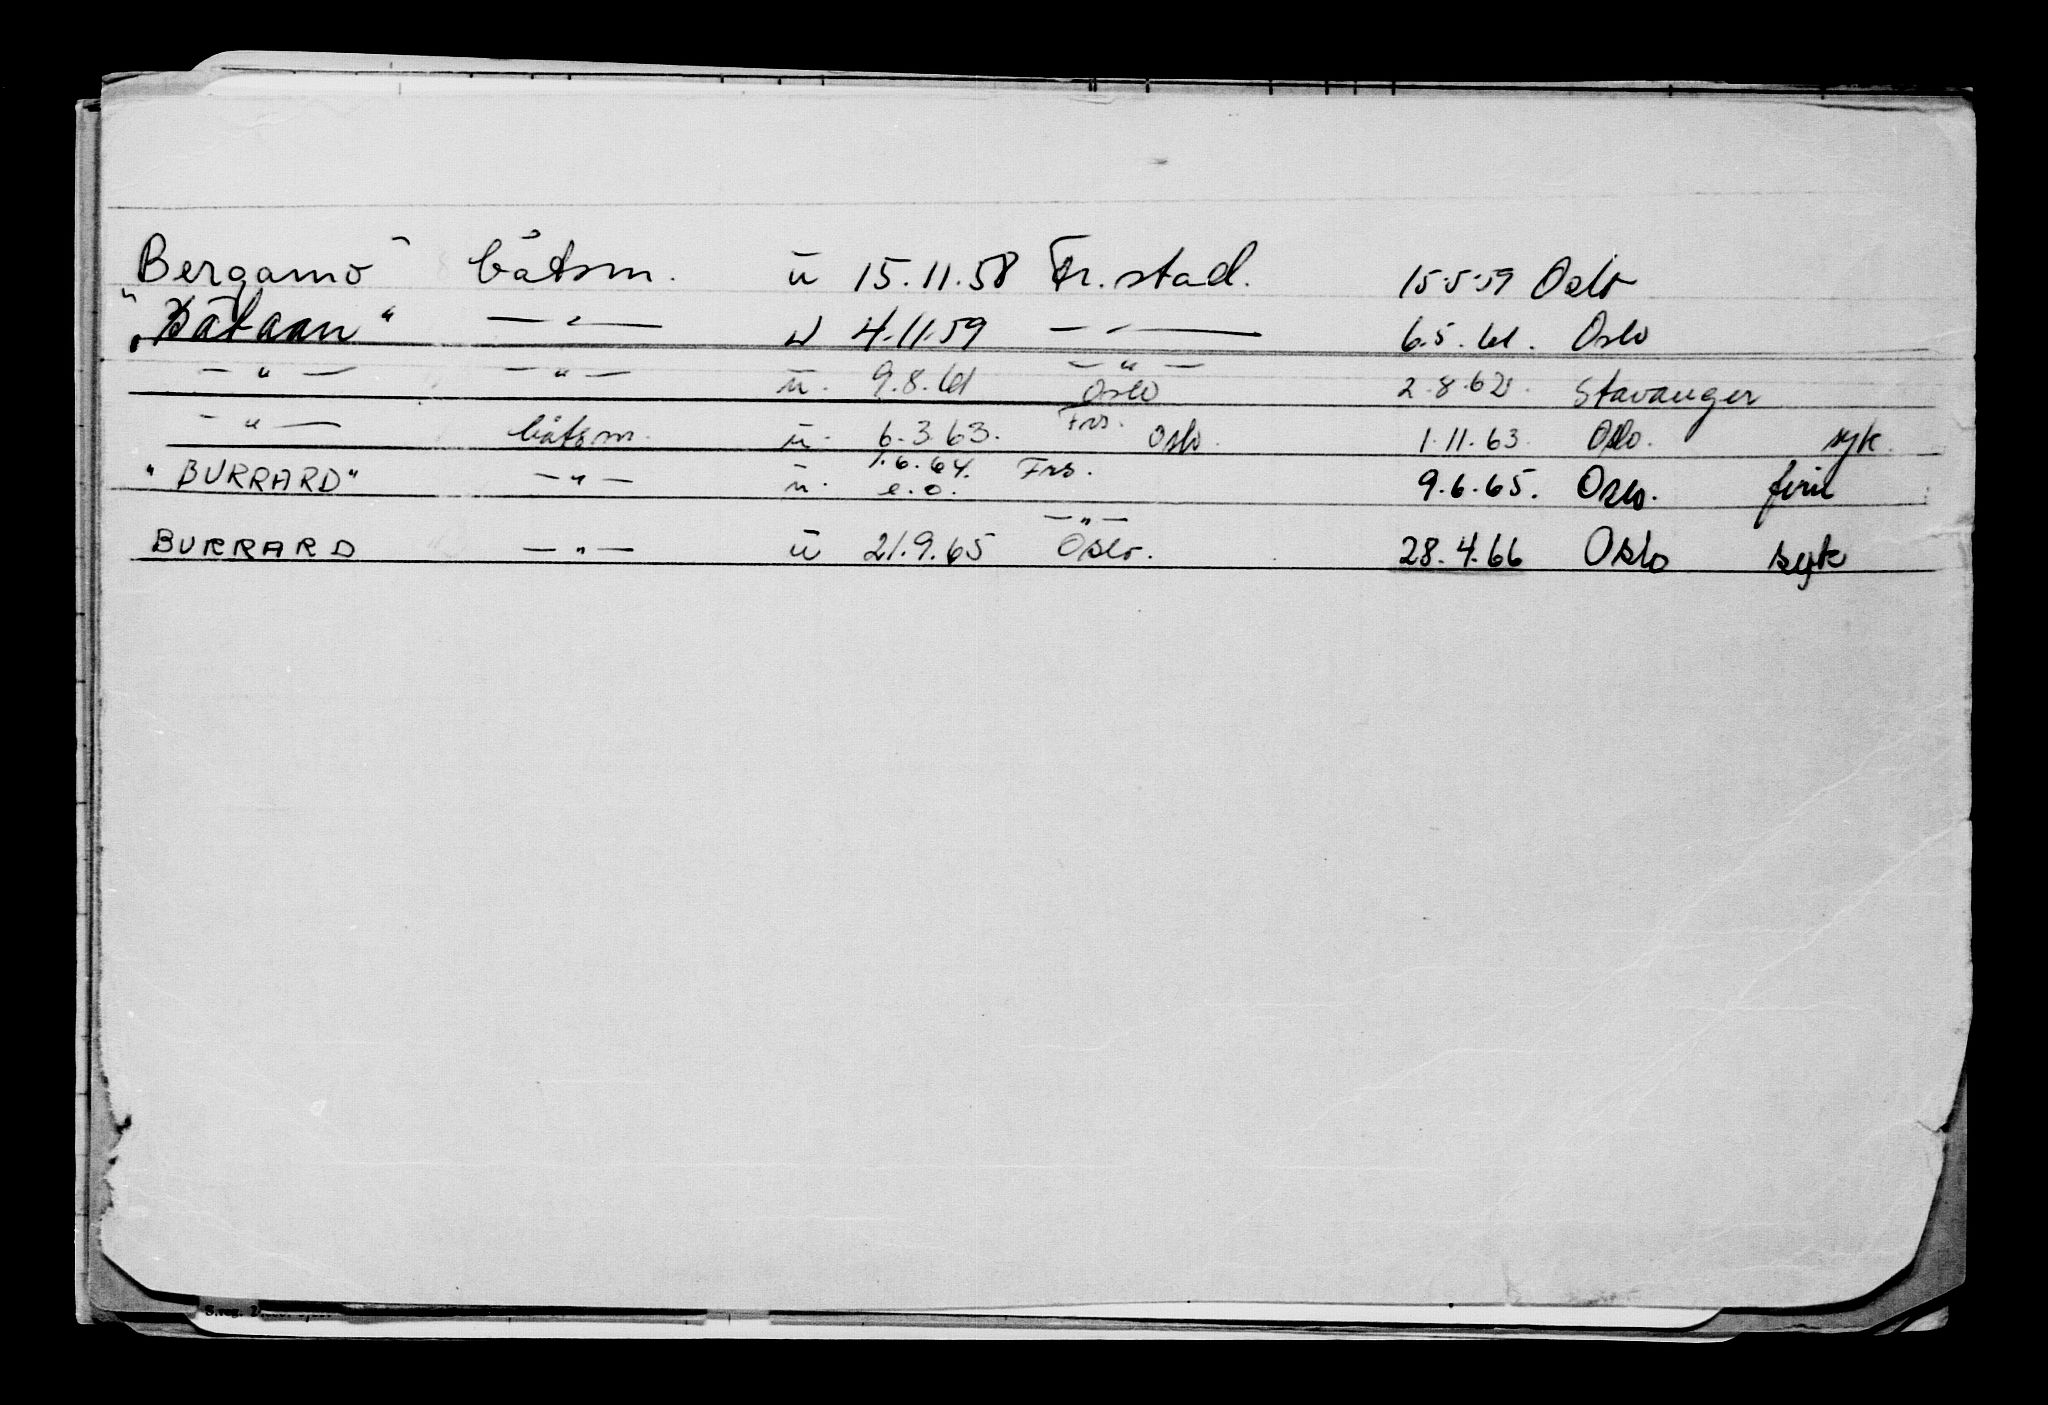 Bergamo" båtsm. u 15.11.58 Fr.stad. 15.5.59 Oslo
"Bataan" — " — u 4.11.59 — " — 6.5.61. Oslo
— " — — " — u. 9.8.61 — " — Oslo 2.8.62. Stavanger
— " — båtsm. u. 6.3.63. Frs. Oslo. 1.11.63. Oslo. syk.
"BURRARD" — " — u. 1.6.64. e.o. Frs. 9.6.65. Oslo. ferie
BURRARD — " — u 21.9.65 — " — Oslo. 28.4.66 Oslo syk